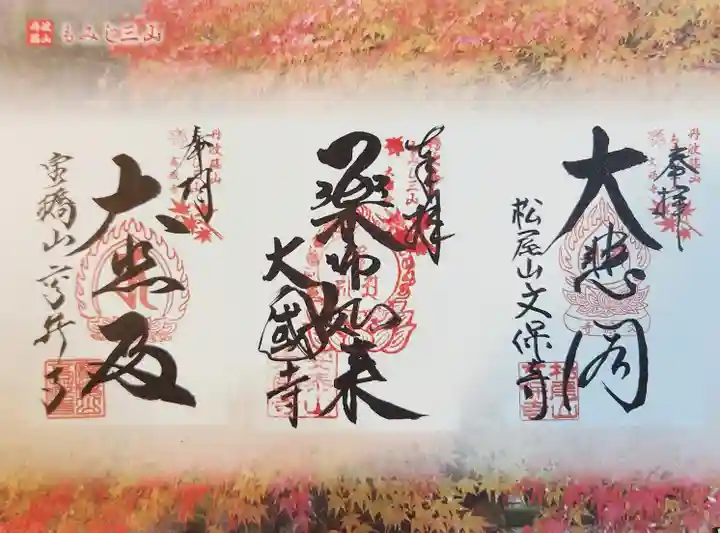 丹波篠山
もみじ三山
奉拝
大悲閣
松尾山文保寺
奉拝
薬師如来
大國寺
奉拝
大悲殿
宝橋山高蔵寺